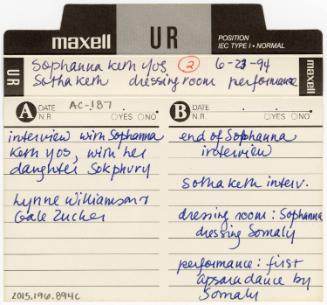 maxell UR POSITION
IEC TYPE I • NORMAL
UR
Sophanna Keth Yos ② 6-23-94
Sotha Keth dressing room performance
A DATE AC-187
N.R. ○YES ○NO
B DATE
N.R. ○YES ○NO
interview with Sophanna
Keth Yos, with her
daughter Sokphury
Lynne Williamson &
Gale Zucker
2015.196.894c
end of Sophanna
interview
Sotha Keth interv.
dressing room: Sophanna
dressing Somaly
performance: first
Apsara dance by
Somaly